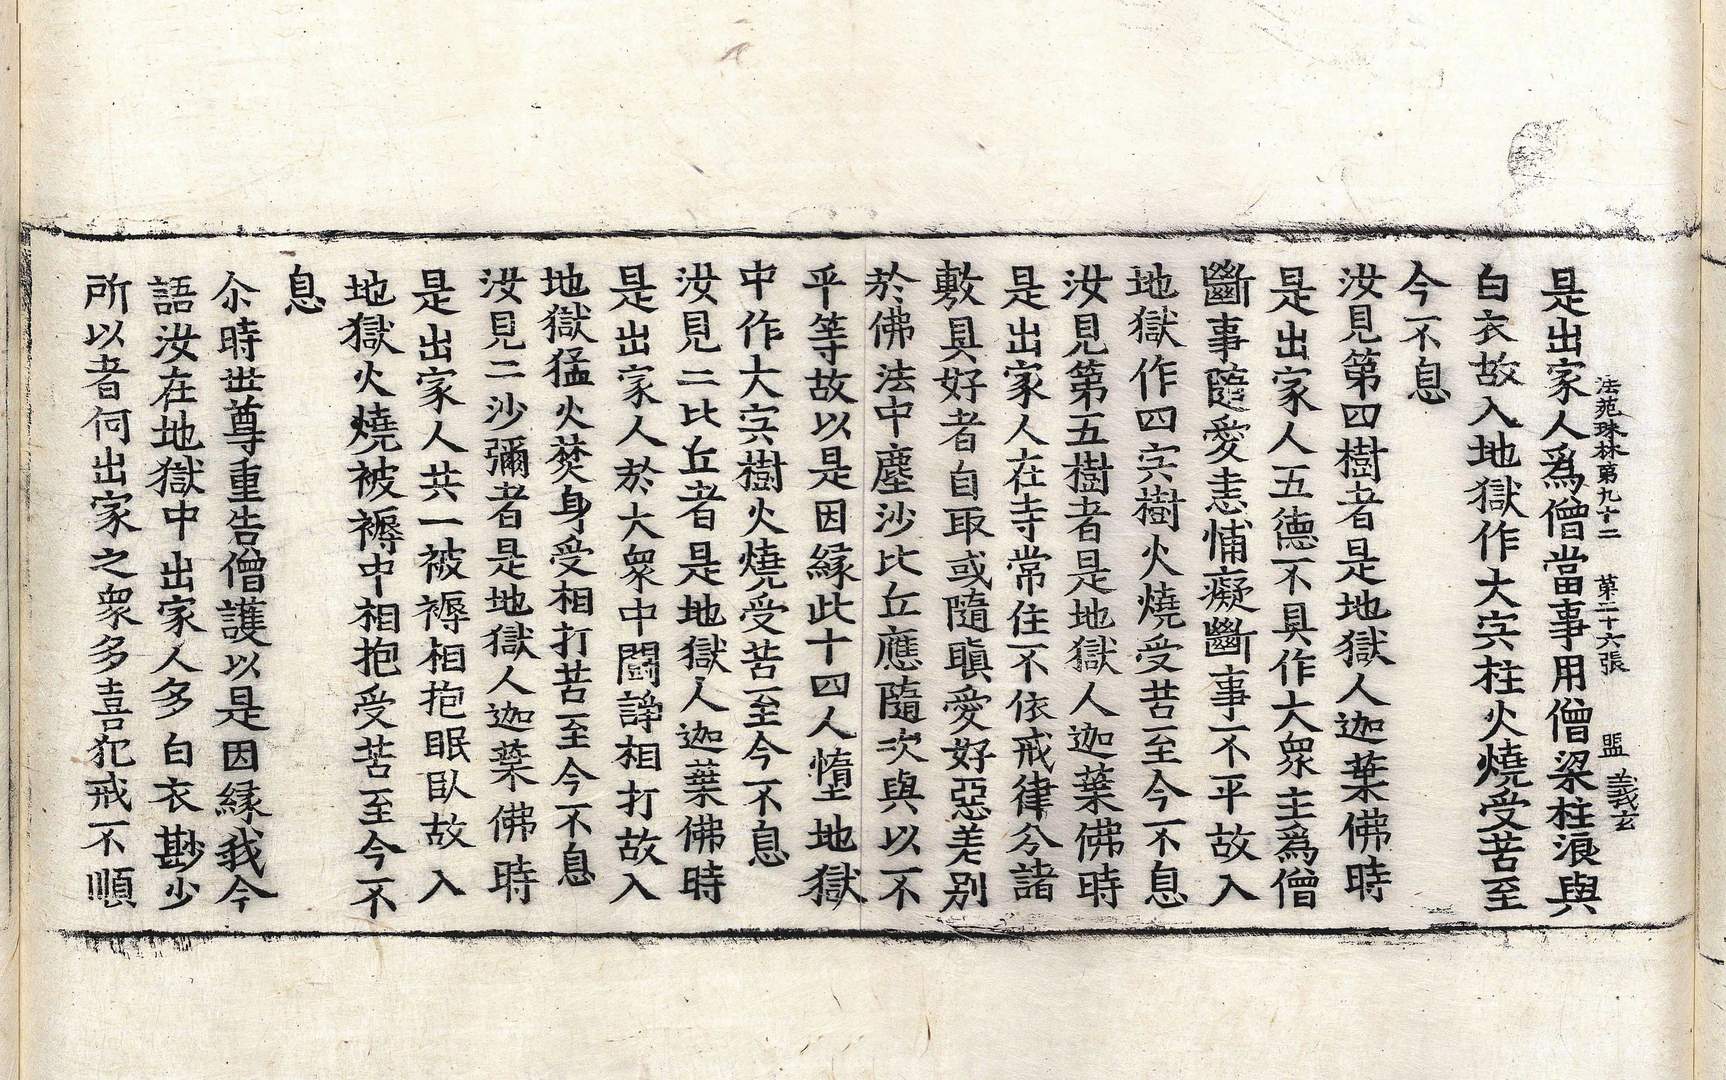 法苑珠林第九十二　第二十六張　盟　義玄
是出家人爲僧當事用僧梁柱浪與
白衣故入地獄作大宍柱火燒受苦至
今不息
汝見第四樹者是地獄人迦葉佛時
是出家人五德不具作大衆主爲僧
斷事隨愛恚怖癡斷事不平故入
地獄作四宍樹火燒受苦至今不息
汝見第五樹者是地獄人迦葉佛時
是出家人在寺常住不依戒律分諸
敷具好者自取或隨瞋愛好惡差別
於佛法中塵沙比丘應隨次與以不
平等故以是因緣此十四人墮地獄
中作大宍樹火燒受苦至今不息
汝見二比丘者是地獄人迦葉佛時
是出家人於大衆中鬪諍相打故入
地獄猛火焚身受相打苦至今不息
汝見二沙彌者是地獄人迦葉佛時
是出家人共一被褥相抱眠臥故入
地獄火燒被褥中相抱受苦至今不
息
尒時世尊重告僧護以是因緣我今
語汝在地獄中出家人多白衣尠少
所以者何出家之衆多喜犯戒不順